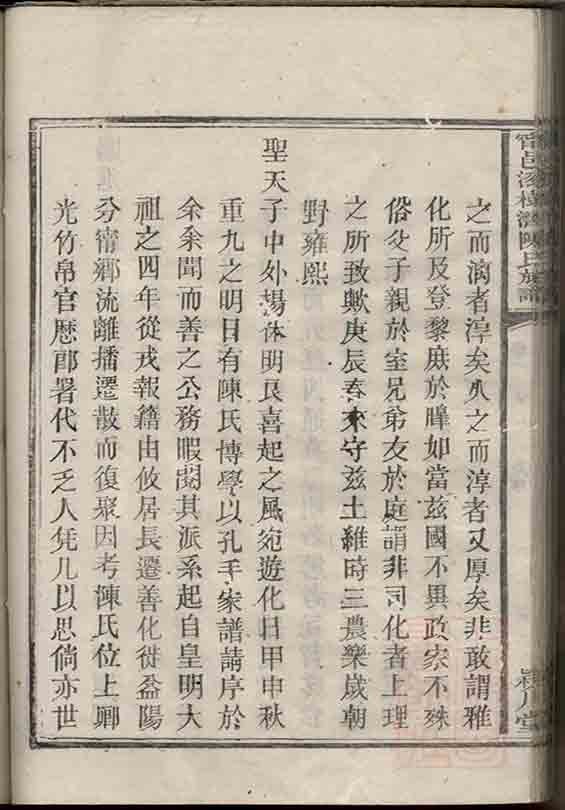 甯邑滦樹灣陳氏族譜
潁川堂
之而漓者淳矣久之而淳者又厚矣非敢謂雅
化所及登黎庶於雝如當兹國不異政家不殊
俗父子親於室兄弟友於庭謂非司化者上理
之所致歟庚辰春來守兹土維時三農樂歲朝
野雍熙
聖天子中外揚休明良喜起之風宛遊化日甲申秋
重九之明日有陳氏博學以孔手家譜請序於
余余聞而善之公務暇閱其派系起自皇明大
祖之四年從戎報籍由攸居長遷善化徙益陽
分甯鄉流離播遷散而復聚因考陳氏位上卿
光竹帛官歷郎署代不乏人凭几以思倘亦世